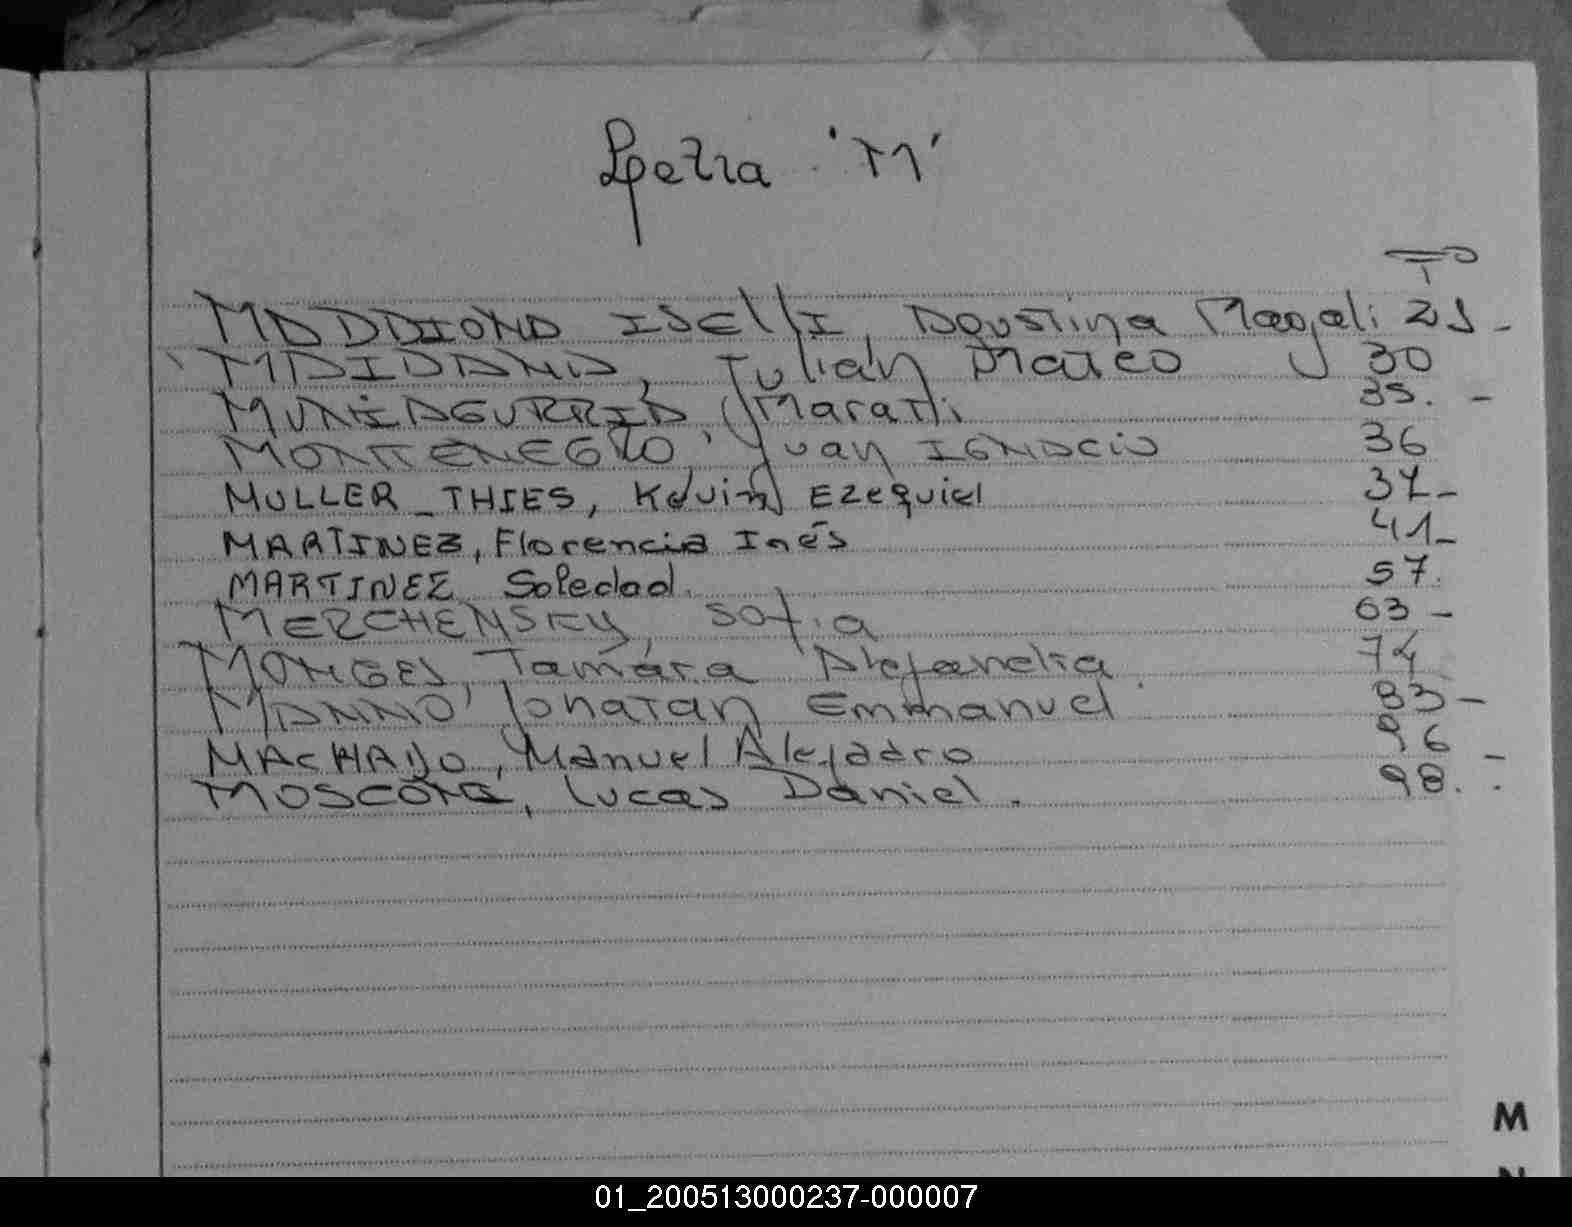 Letra 'M'
Tº
MADDIONA ISELLI, Agustina Magali 25-
MAIDANA, Julián Mateo 30
MUNIAGURRIA, Maratli 35. -
MONTENEGRO, Juan IGNACIO 36
MULLER_THIES, Kevin Ezequiel 37-
MARTINEZ, Florencia Inés 41-
MARTINEZ Soledad. 57.
MERZCHENSKY, Sofia 63-
MONGES, Tamara Alejandra 74
MANNO, Jonatan Emmanuel 83-
MACHADO, Manuel Alejadro 96 -
MOSCONE, Lucas Daniel. 98.
M
01_200513000237-000007